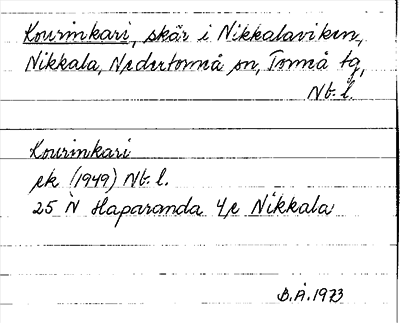 Kourinkari, skär i Nikkalaviken,
Nikkala, Nedertorneå sn, Torneå tg,
Nb. l.
Kourinkari
ek (1949) Nb. l.
25 N Haparanda 4e Nikkala
B.Å. 1973